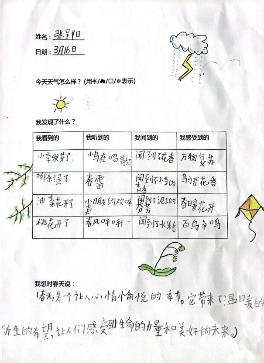 姓名：
日期：3月16日
今天天气怎么样？（用☀/☁/☐/❄表示）
我发现了什么？
我看到的 我听到的 我闻到的 我感受到的
小草发芽了 小鸟在唱歌 闻到花香 万物复苏
柳条绿了 春雷 鸟语花香
油菜花开了 春暖花开
桃花开了 百鸟争鸣
我想对春天说：
春天是个让人心情愉悦的季节。它带来了温暖的
新生的希望，让人们感受到生命的力量和美好的未来。